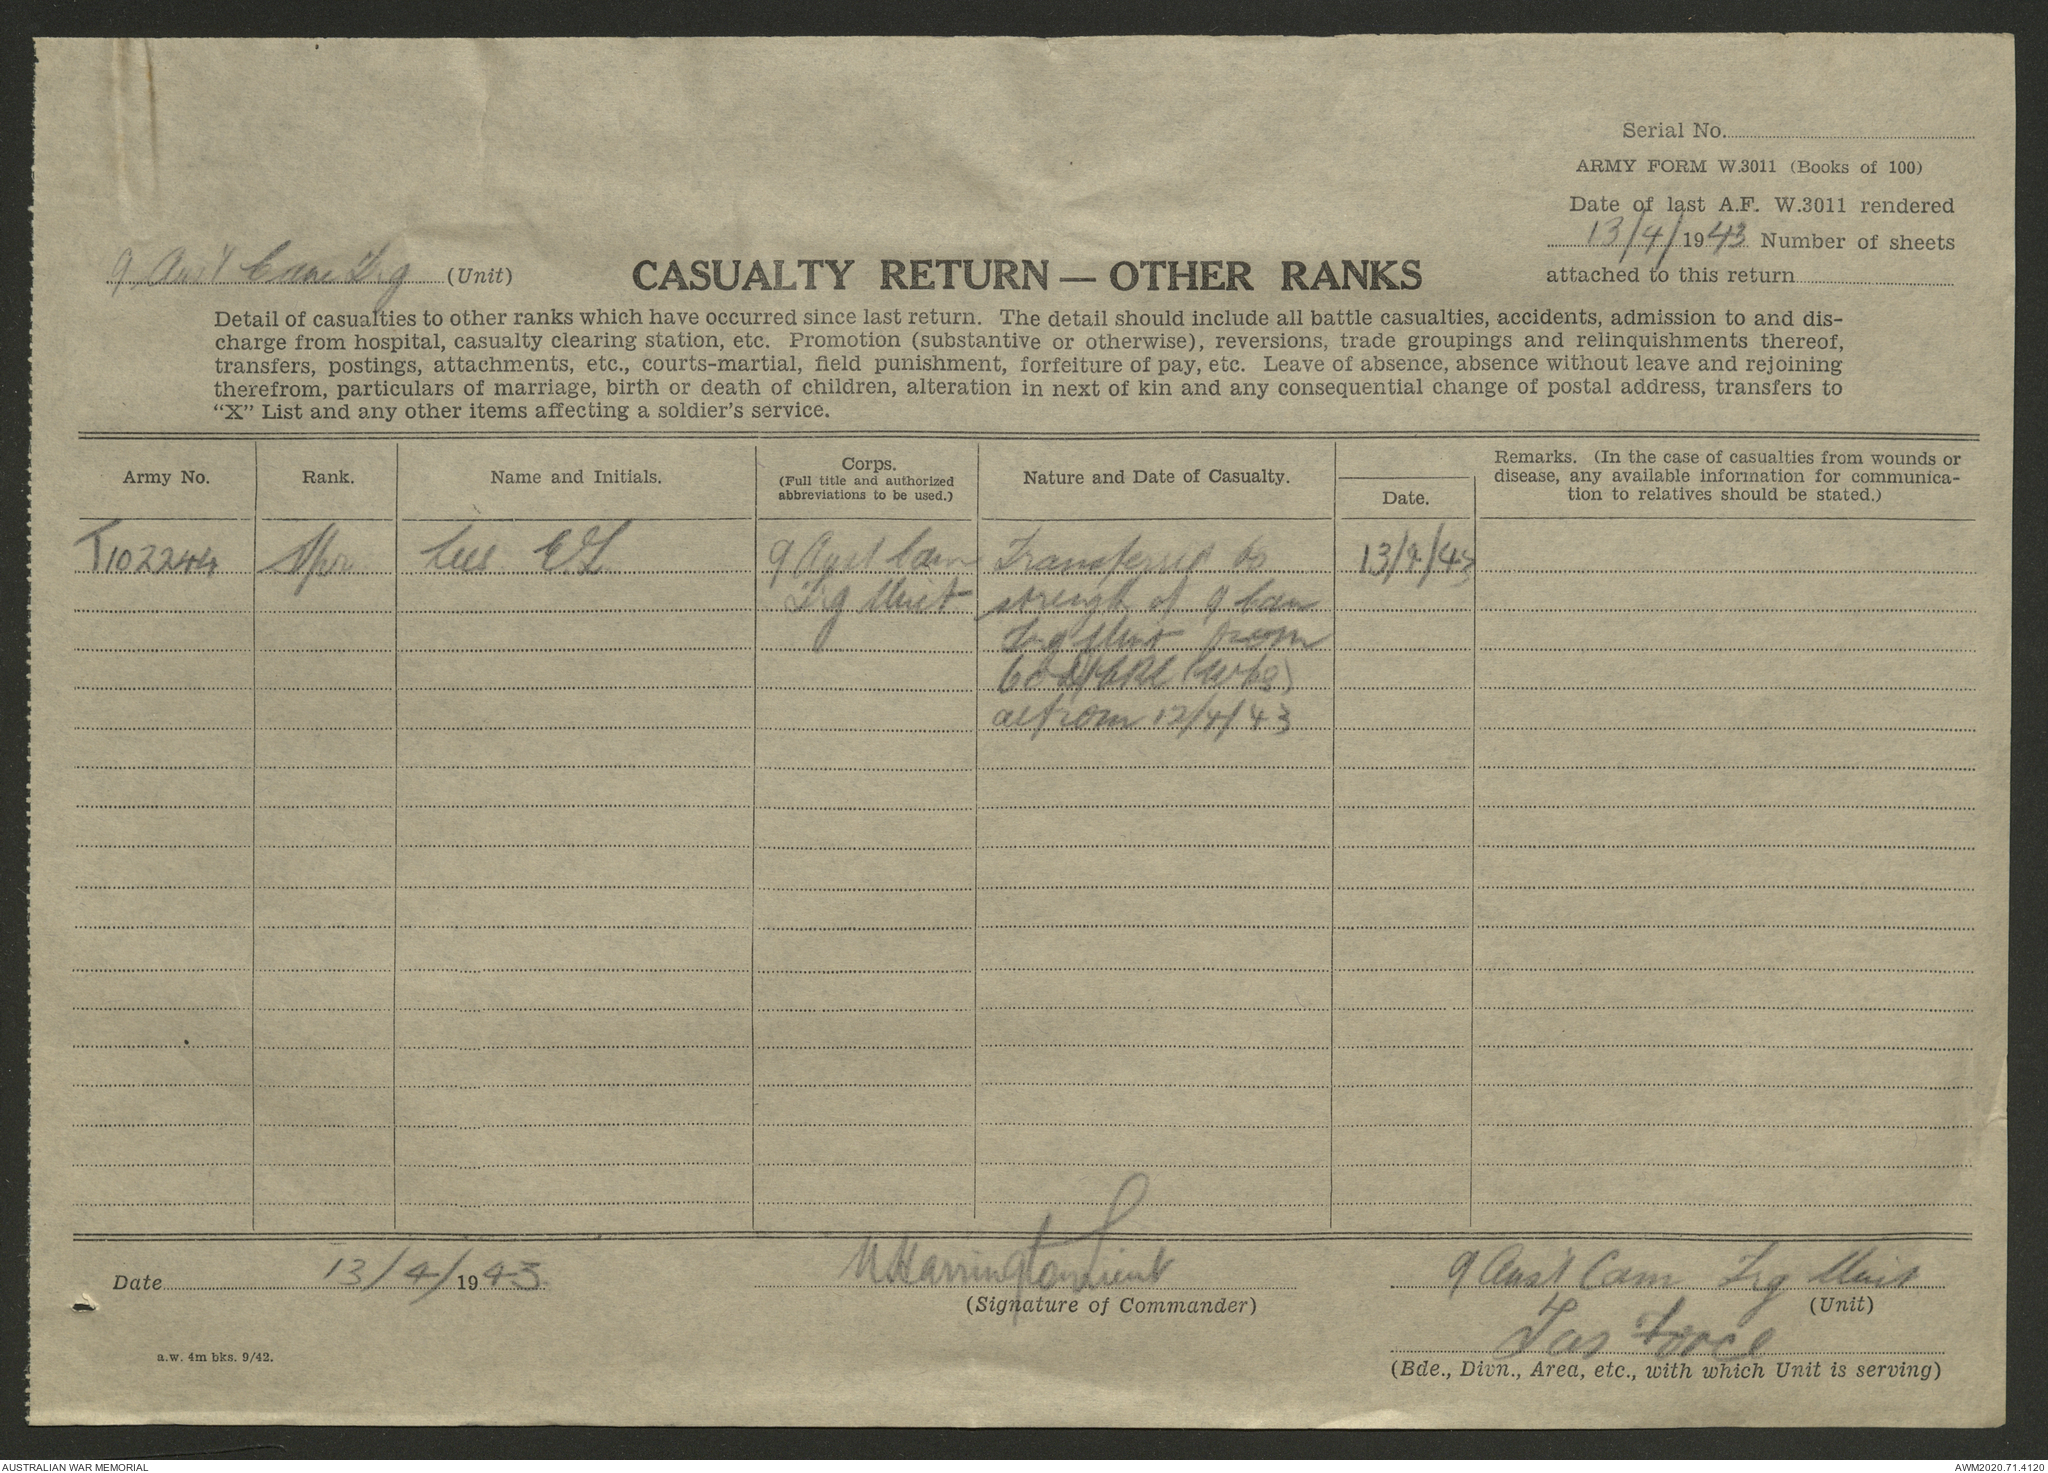 Serial No.
ARMY FORM W.3011 (Books of 100)
Date of last A.F. W.3011 rendered
13/4/1943 Number of sheets
attached to this return
9 Aust Cam Trg (Unit)
CASUALTY RETURN — OTHER RANKS
Detail of casualties to other ranks which have occurred since last return. The detail should include all battle casualties, accidents, admission to and dis-
charge from hospital, casualty clearing station, etc. Promotion (substantive or otherwise), reversions, trade groupings and relinquishments thereof,
transfers, postings, attachments, etc., courts-martial, field punishment, forfeiture of pay, etc. Leave of absence, absence without leave and rejoining
therefrom, particulars of marriage, birth or death of children, alteration in next of kin and any consequential change of postal address, transfers to
"X" List and any other items affecting a soldier's service.
Army No.
Rank.
Name and Initials.
Corps.
(Full title and authorized
abbreviations to be used.)
Nature and Date of Casualty.
Date.
Remarks. (In the case of casualties from wounds or
disease, any available information for communica-
tion to relatives should be stated.)
T102244 Spr E.L. 9 Aust Cam Transferred to 13/4/43
Trg Unit strength of 9 Cam
Trg Unit from
(Wks)
as from 12/4/43
Date 13/4/1943
Harrington Lieut
(Signature of Commander)
9 Aust Cam Trg Unit
(Unit)
Tas Force
(Bde., Divn., Area, etc., with which Unit is serving)
a.w. 4m bks. 9/42.
AUSTRALIAN WAR MEMORIAL
AWM2020.71.4120